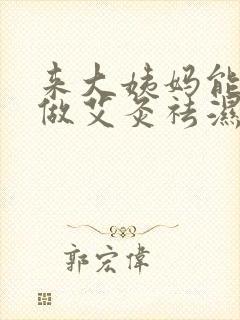 来大姨妈能
做艾灸祛濕
郭宏偉